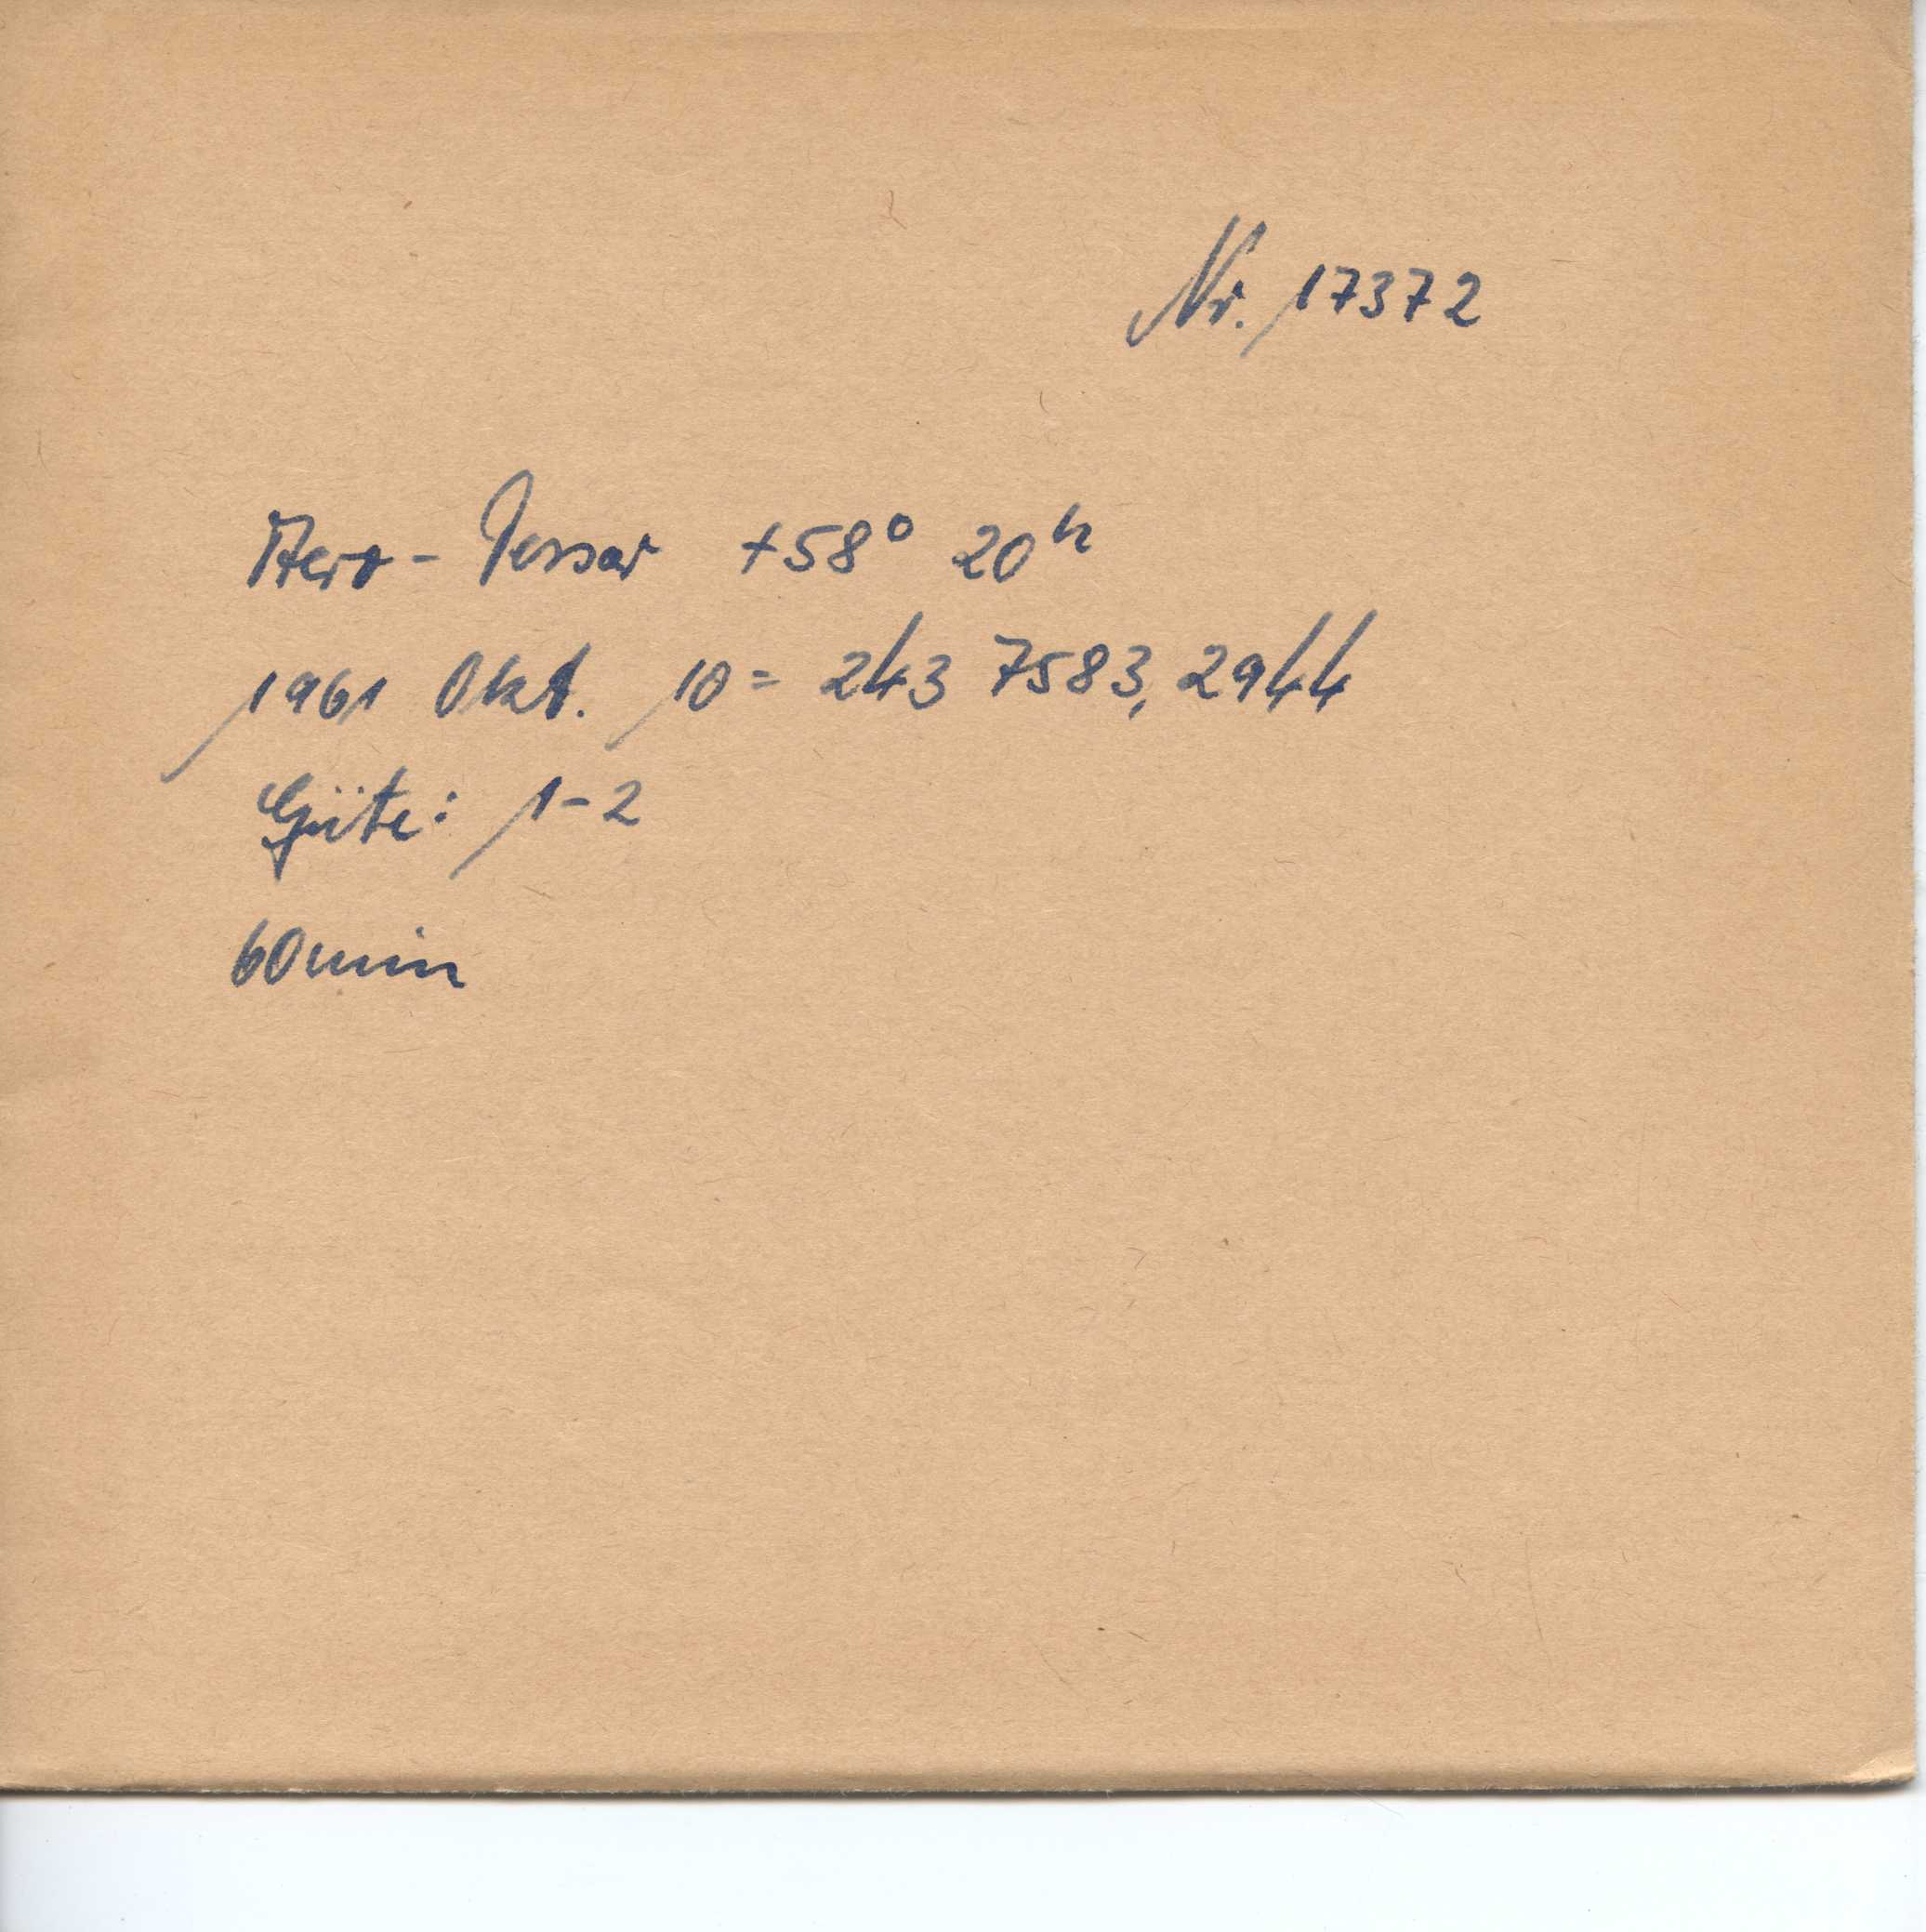 Nr. 17372
Aero-Tessar +58° 20ʰ
1961 Okt. 10 = 243 7583,2944
Güte: 1-2
60min